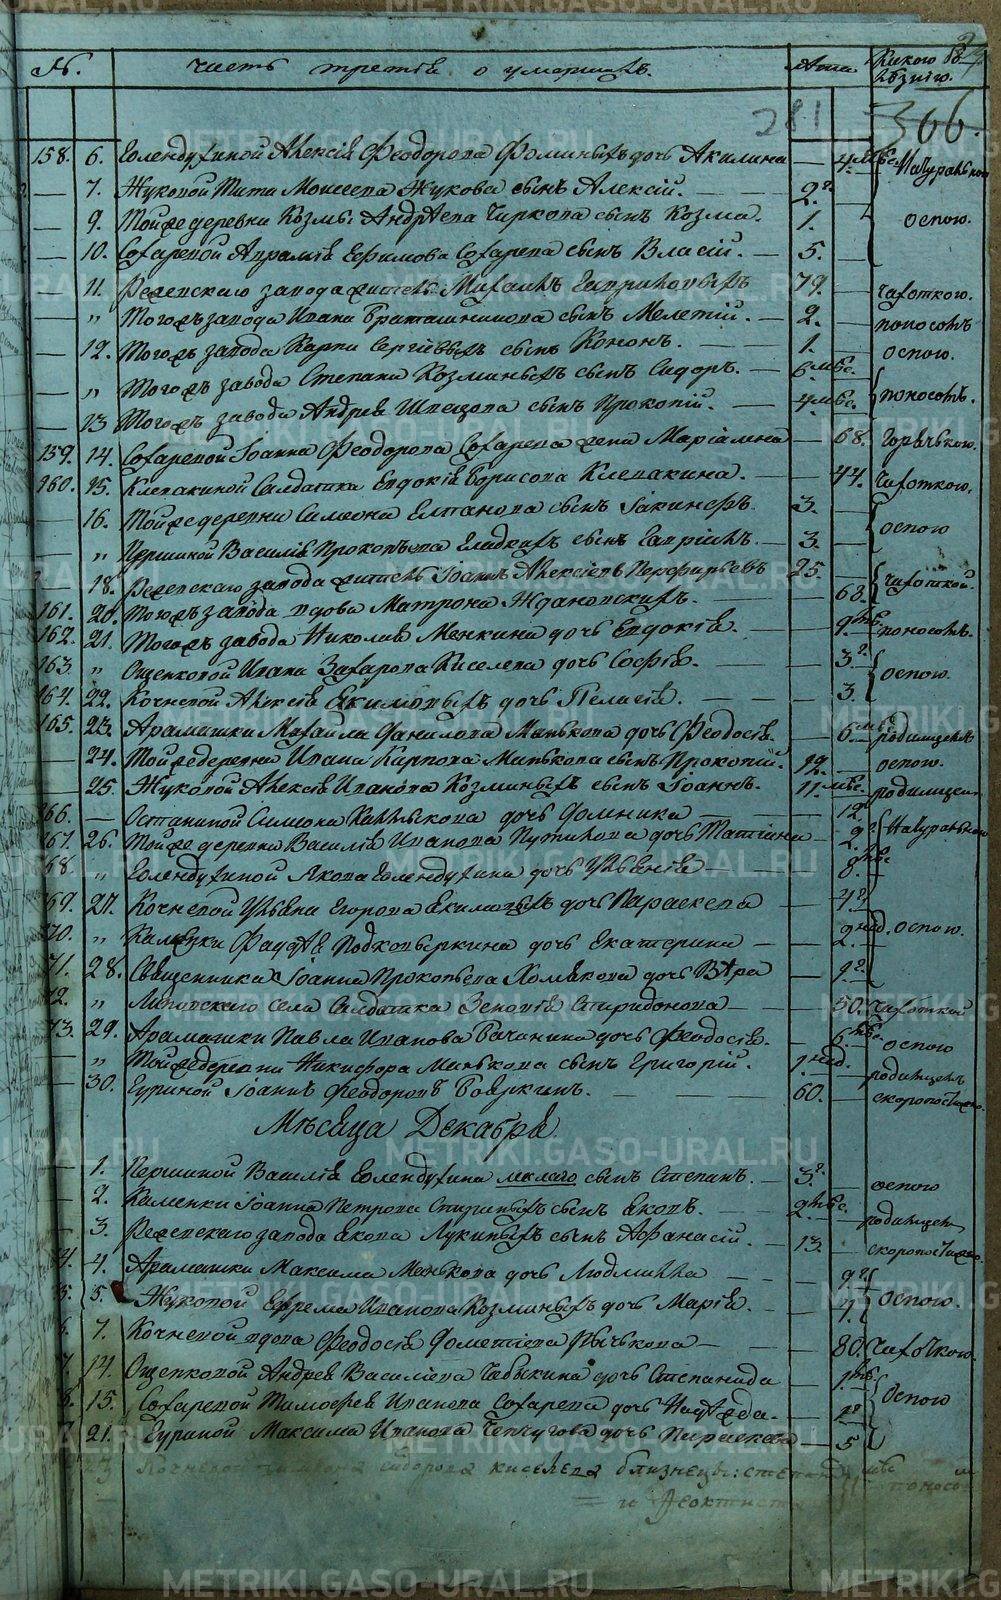 №. часть третія о умершихъ. лѣта Какою болѣзнію.
281 306.
158. 6. Голендухиной Алексія Феодорова Фоминыхъ дочь Акилина — 4 мѣс. натуральною
— 7. Жуковой Тита Моисеева Жукова сынъ Алексій. — 2.
— 9. Той же деревни Козмы Андреева Чиркова сынъ Козма. 1. оспою.
— 10. Сохаревой Аврамія Ефимова Сохарева сынъ Власій. — 5.
— 11. Режевскаго завода житель Михаилъ 79. — чахоткою.
— „ Тогожъ завода Ивана Браташникова сынъ Мелетій. — 2. — поносомъ
— 12. Тогожъ завода Карпа Сергіевыхъ сынъ Кононъ. — 1. — оспою.
— „ Тогожъ завода Стефана Козминыхъ сынъ Сидоръ. — 6 мѣс.
— 13 Тогожъ завода Андрея Швецова сынъ Прокопій. — 4 мѣс. поносомъ.
159. 14. Сохаревой Іоанна Феодорова Сохарева жена Маріамна — 68. горячькою.
160. 15. Клевакиной Солдатка Евдокія Борисова Клевакина. — 44. чахоткою.
— 16. Той же деревни Симеона Елпанова сынъ Іакинфъ. 3. —
— „ Першиной Василія Прокопьева Гладкихъ сынъ Гавріилъ. — 3. — оспою
— 18. Режевскаго завода житель Іоаннъ Алексіевъ Перфирьевъ 25 —
161. 20. Тогожъ завода вдова Матрона Ждановскихъ. — 68. чахоткой.
162. 21. Тогожъ завода Николая Менкина дочь Евдокія. — поносомъ.
163. „ Ощепковой Ивана Захарова Киселева дочь Софія. — 3.
164. 22. Кочневой Алексія Екимовыхъ дочь Пелагія. — 3. оспою.
165. 23. Арамашки Михаила Данилова Манькова дочь Феодосія. — 6 мѣс. родимцемъ
— 24. Той же деревни Ивана Карпова Манькова сынъ Прокопій. 12. — оспою.
— 25. Жуковой Алексія Иванова Козминыхъ сынъ Іоаннъ. 11 мѣс. — родимцемъ
166. — Останиной Симеона дочь Домника — 12.
167. 26. Той же деревни Василія Иванова Путилова дочь Татіана — 2. натуральною
168. „ Голендухиной Якова Голендухина дочь Уліанія — 8. мѣс
169. 27. Кочневой Ульяна Егорова Екимовыхъ дочь Параскева — 4.
170. „ Каменки Фаддѣя Подковыркина дочь Екатерина — 2. нед. оспою.
171. 28. Священника Іоанна Прокопьева Хомякова дочь Вѣра — 1.
172. „ Липовскаго села Солдатка Зеновія Спиридонова — 50. чахоткой
173. 29. Арамашки Павла Иванова Рачанина дочь Феодосія. — 6. мѣс. оспою
— „ Той же деревни Никифора Манькова сынъ Григорій. 1 нед. — родимцемъ
— 30. Гуриной Іоаннъ Феодоровъ Бояркинъ. — 60. — скоропостижно.
Мѣсяца Декабря
— 1. Першиной Василія Голендухина малаго сынъ Степанъ. — 3. — оспою
— 2. Каменки Іоанна Петрова сынъ Яковъ. — 2 мѣс. родимцемъ
— 3. Режевскаго завода Якова Лукиныхъ сынъ Афанасій. — 13. — скоропостижно.
4. 4. Арамашки Максима Манькова дочь Людмилла — 2.
5. 5. Жуковой Ефрема Иванова Козминыхъ дочь Марія. — 4. оспою.
6. 7. Кочневой вдова Феодосія Дометіева Рычькова — 80. чахоткою.
7. 14. Ощепковой Андрея Василіева Чабыкина дочь Степанида — 1
8. 15. Сохаревой Тимофея Иванова Сохарева дочь Надежда. — 1 оспою
9. 21. Гуриной Максима Иванова Чепчугова дочь Параскева — 5
Кочневой Сидорова Киселева близнецы: Степанъ
и Феоктиста